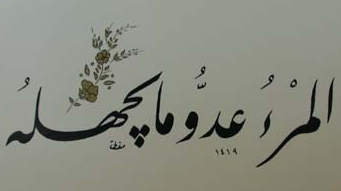 المرْءُ عدُّو ما يجهلهُ
١٤١٩